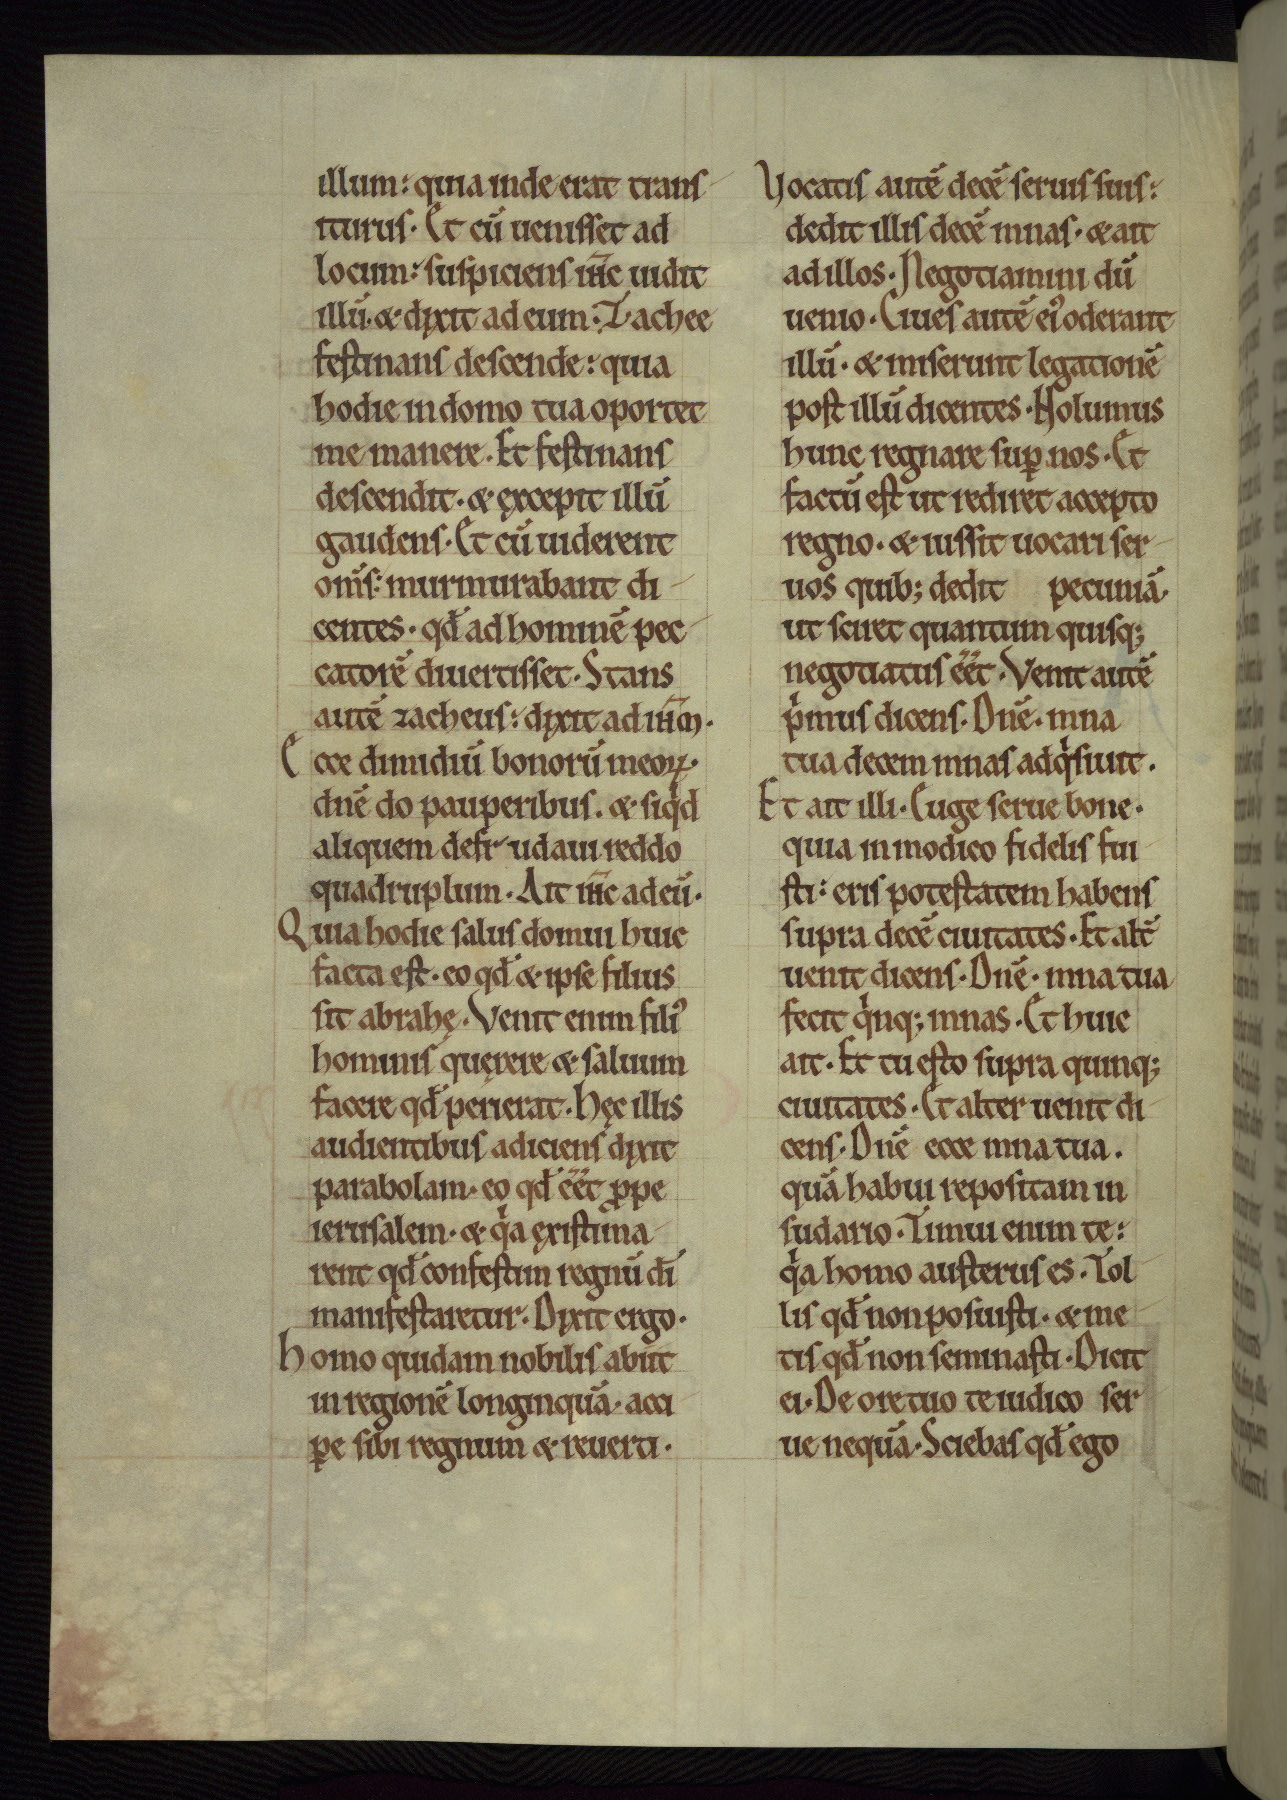 illum: quia inde erat trans
iturus. Et cū uenisset ad
locum: suspiciens ihc̄ uidit
illū. & dixit ad eum. Zachee
festinans descende: quia
hodie in domo tua oportet
me manere. Et festinans
descendit. & excepit illū
gaudens. Et cū uiderent
oms̄: murmurabant di
centes. qđ ad hominē pec
catorē diuertisset. Stans
autē zacheus: dixit ad ihm̄.
Ecce dimidiū bonorū meoꝝ.
dnē do pauperibus. & siqͥd
aliquem defraudaui reddo
quadruplum. Ait ihc̄ ad eū.
Quia hodie salus domui huic
facta est. eo qđ & ipse filius
sit abrahę. Venit enim filiꝰ
hominis quęrere & saluum
facere qđ perierat. Hęc illis
audientibus adiciens dixit
parabolam. eo qđ eēt ꝓpe
ierusalem. & qͥa existima
rent qđ confestim regnū dī
manifestaretur. Dixit ergo.
Homo quidam nobilis abiit
in regionē longinquā. acci
ꝑe sibi regnum & reuerti.
Vocatis autē decē seruis suis:
dedit illis decē mnas. & ait
ad illos. Negotiamini dū
uenio. Ciues autē eiꝰ oderant
illū. & miserunt legationē
post illū dicentes. Nolumus
hunc regnare suꝑ nos. Et
factū est ut rediret accepto
regno. & iussit uocari ser
uos quib; dedit pecuniā.
ut sciret quantum quisq;
negotiatus eēt. Venit autē
pͥmus dicens. Dnē. mna
tua decem mnas adqͥsiuit.
Et ait illi. Euge serue bone.
quia in modico fidelis fui
sti: eris potestatem habens
supra decē ciuitates. Et altē
uenit dicens. Dnē. mna tua
fecit qͥnq; mnas. Et huic
ait. Et tu esto supra quinq;
ciuitates. Et alter uenit di
cens. Dnē ecce mna tua.
quā habui repositam in
sudario. Timui enim te:
qͥa homo austerus es. Tol
lis qđ non posuisti. & me
tis qđ non seminasti. Dicit
ei. De ore tuo te iudico ser
ue nequā. Sciebas qđ ego